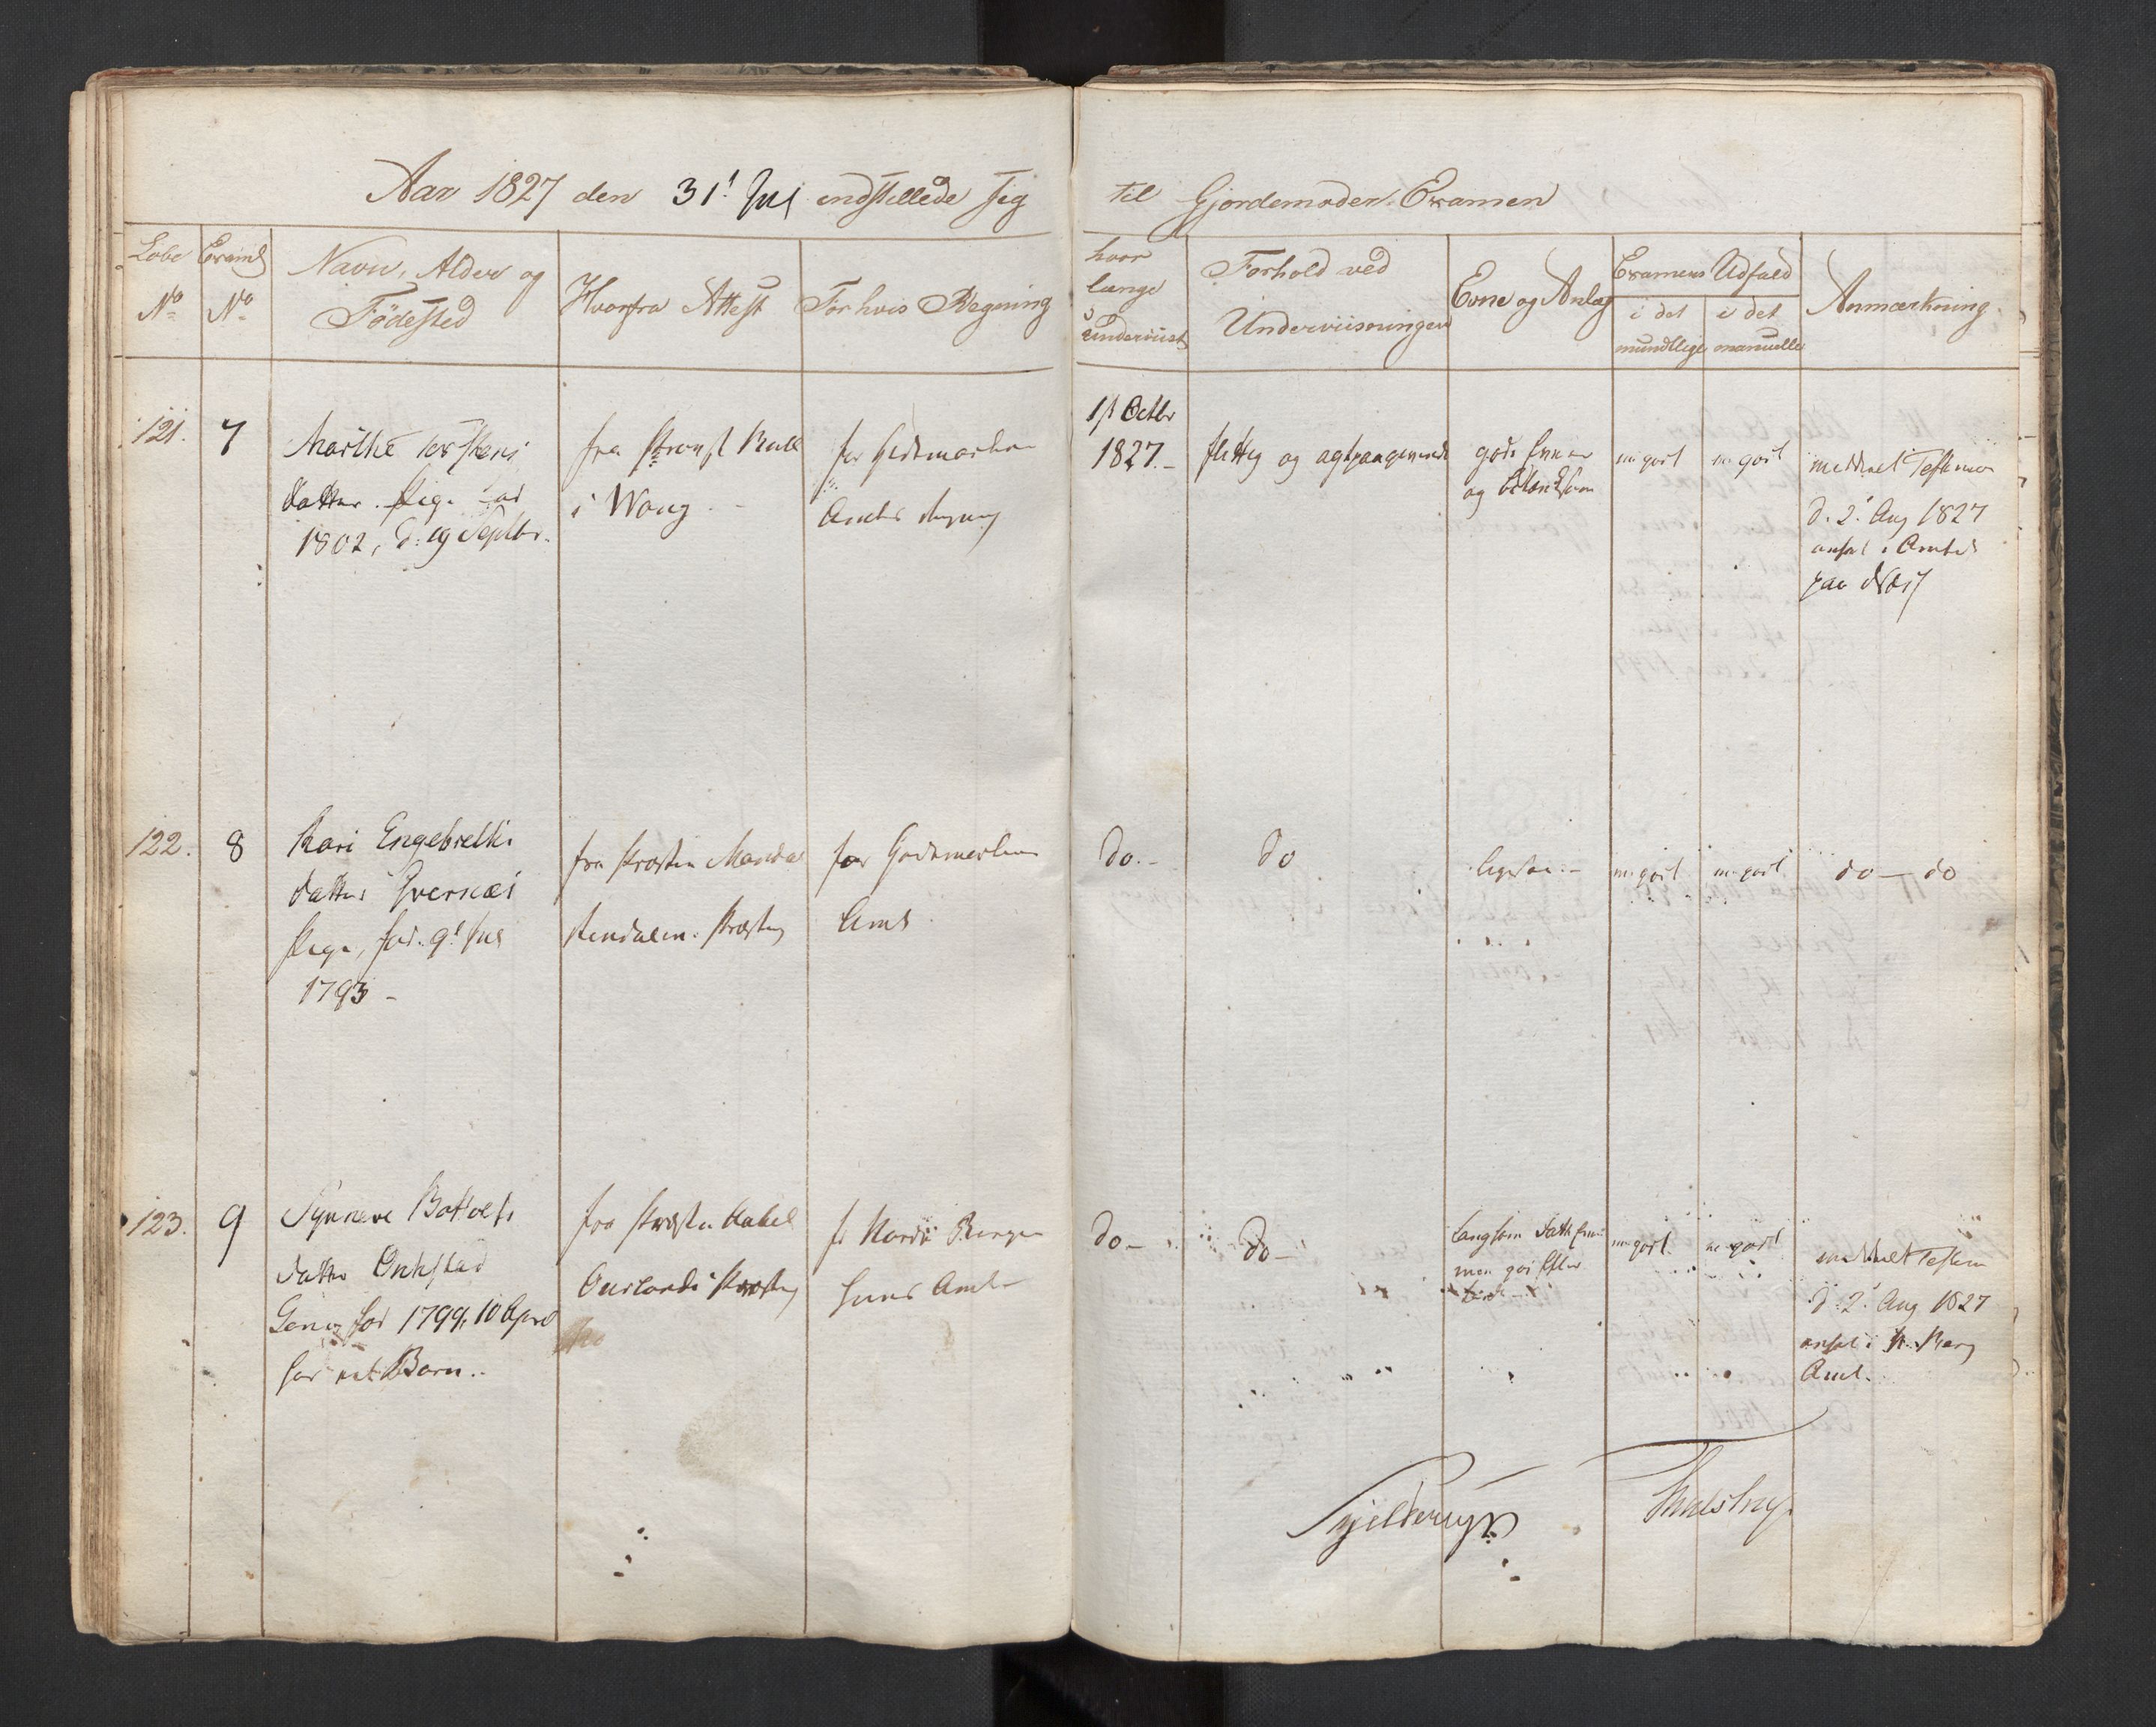 Aar 1827 den 31t Juli indstillede sig
til Gjordemoder Examen
Løbe No
Examens No
Navn, Alder og
Födested
Hvorfra Attest
For hvis Regning
hvor
længe
underviist
Forhold ved
Underviisningen
Evne og Anlæg
Examens Udfald
i det
mundtlige
i det
manuelle
Anmærkning
121.
7
Marthe Torstens
datter. Pige
1802, d: 19 Septbr.
fra
i Wang
for Hedemarkens
Amts Regning
1st Octbr
1827.-
flittig og agtpaagivende
gode Evner
og
m: godt
m: godt
meddeelt Testimon
d. 2 Aug 1827
ansat i Amtet
paa
122.
8
Kari Engebretts
datter
Pige, fød. 9t Juli
1793 -
fra Præsten
for Hedemarkens
Amt
do.-
do
m: godt
m: godt
do - do
123.
9
Synneve Botolfs
datter
fød 1799, 10 April
har et Barn..
fra Præsten
Ourlands Præstg
for Nordre Bergen
huus Amt
do -
do -
Langsom
men god
m: godt
m: godt
meddeelt Testim
d. 2 Aug 1827
ansat i N. Berg
Amt.
Skjelderup
Thulstrup